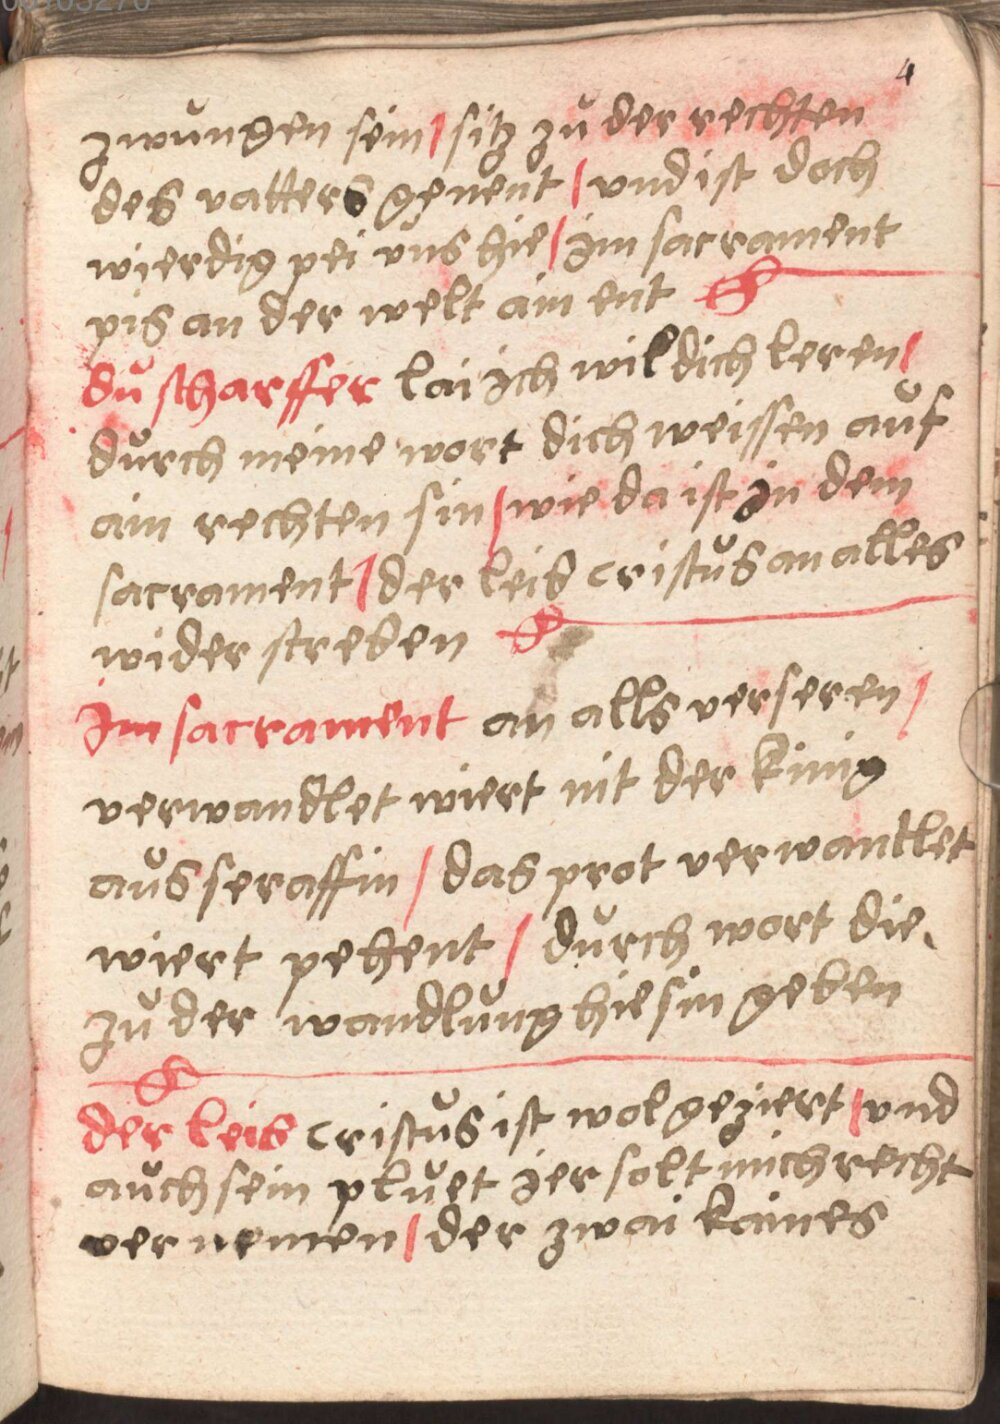 4
zwůngen sein / sitz zů der rechten
des vatters genent / vnd ist doch
wierdig pei vns hie / im sacrament
pis an der welt ain ent
dů scharffer lai ich wil dich leren /
důrch meine wort dich weissen aůf
ain rechten sin / wie da ist in dem
sacrament / der leib cristůs an alles
wider streben
Im sacrament an alls verseren /
verwandlet wiert nit der kinig
aůs seraffin / das prot verwantlet
wiert pehent / důrch wort die
zů der wandlůng hie sin geben
der leib cristůs ist wol geziert / vnd
aůch sein plůet ier solt mich recht
vernemen / der zwai kaines